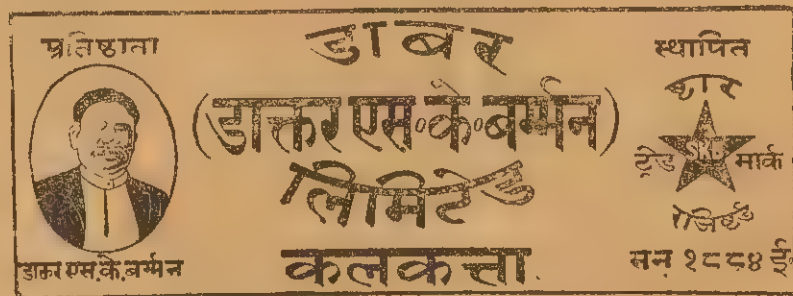 प्रतिष्ठाता
डाक्तर एस.के.बर्म्मन
डाबर
(डाक्तर एस॰के॰बर्म्मन)
लिमिटेड
कलकत्ता
स्थापित
ष्टार
ट्रेड मार्क
रजिष्टर्ड
सन् १८८४ ई॰